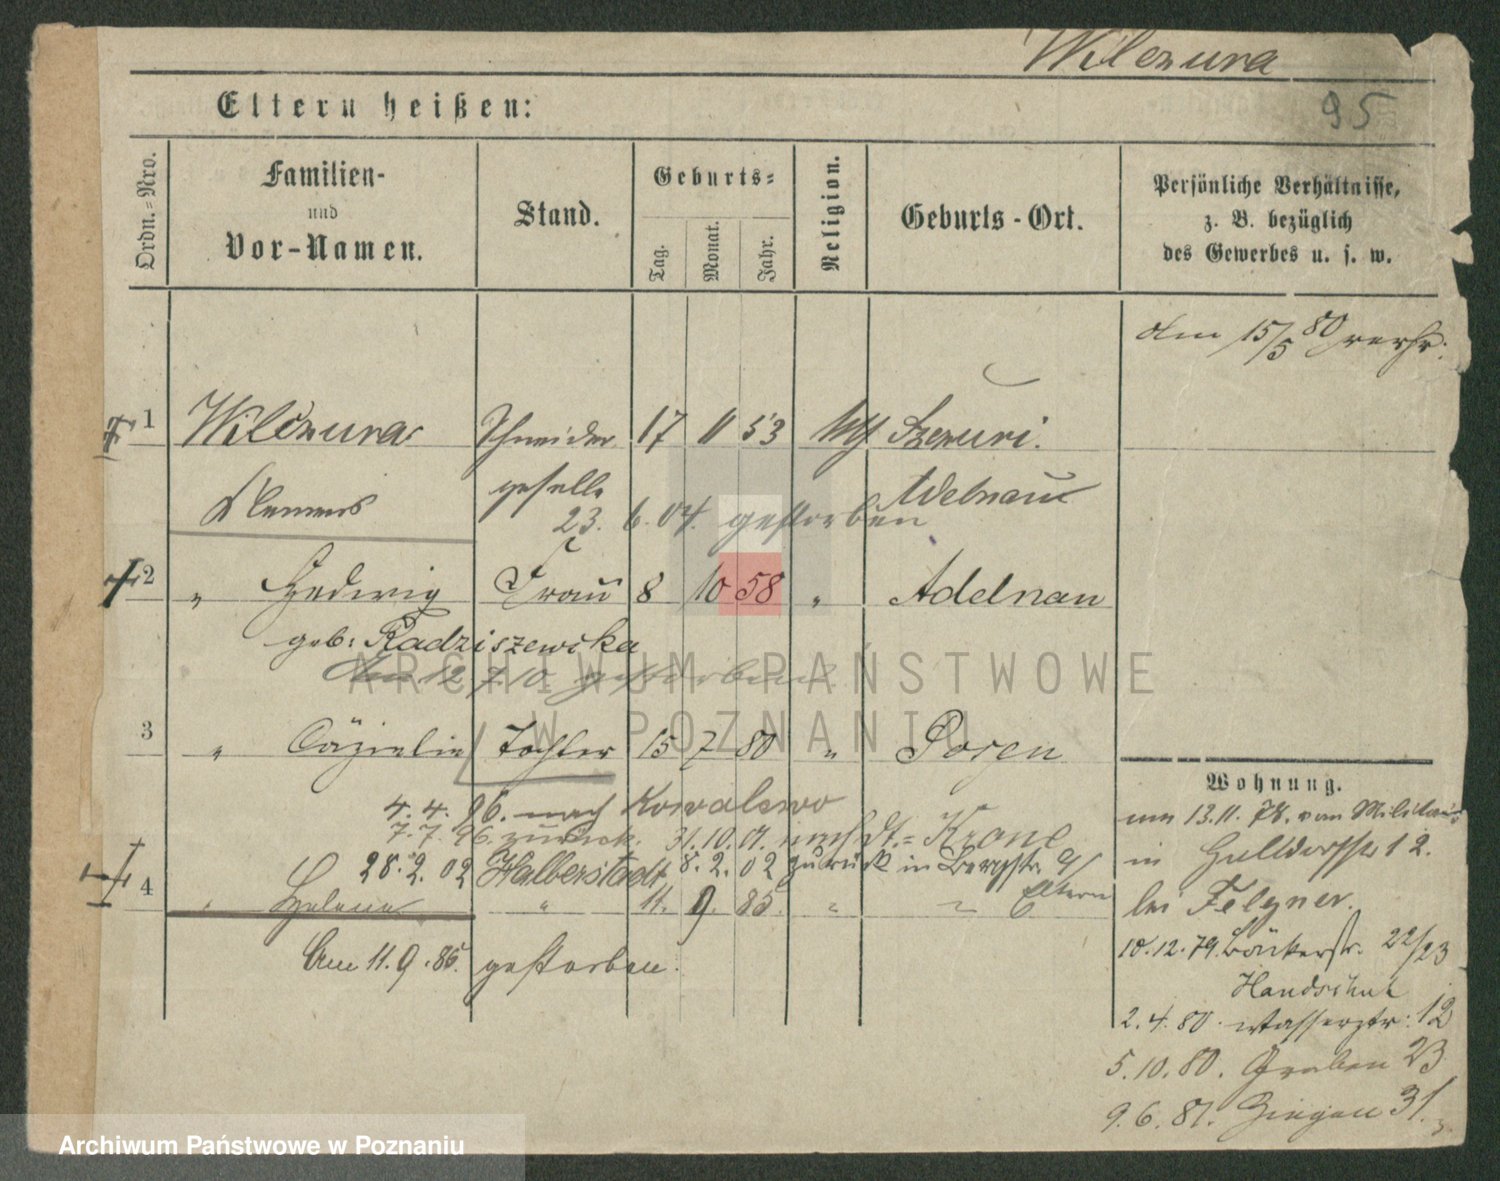 Wilczura
95
Eltern heißen:
Ordn.=Nro.
Familien-
und
Vor-Namen.
Stand.
Geburts=
Tag.
Monat.
Jahr.
Religion.
Geburts-Ort.
Persönliche Verhältnisse,
z. B. bezüglich
des Gewerbes u. s. w.
am 15/5 80 verh.
1 Wilczura Schneider 17 11 53 kth
Klemens geselle Adelnau
23. 6. 04. gestorben
2 " Hedwig Frau 8 10 58 " Adelnau
geb: Radziszewska
Am 12 7 10 gestorben
ARCHIWUM PAŃSTWOWE
W POZNANIU
3 " Cäzielie Tochter 15 7 80 " Posen
4. 4. 96. nach Kowalewo
7. 7. 96 zurück. 31. 10. 01. nach Dt.= Krone
28. 2. 02 Halberstadt 8. 2. 02 zurück in Bergstr. 9/
Eltern
4 " Helena " 11. 9. 85. " "
Am 11. 9. 86. gestorben.
Wohnung.
um 13. 11. 78. vom Militair
in 12.
bei Felgner.
10. 12. 79. Bäckerstr. 22/23
2. 4. 80. Wasserstr: 12
5. 10. 80. Graben 23
9. 6. 81. Ziegen 31.
Archiwum Państwowe w Poznaniu